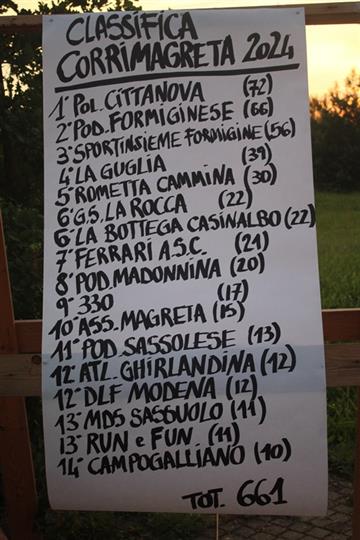 CLASSIFICA
CORRIMAGRETA 2024
1° POL. CITTANOVA (72)
2° POD. FORMIGINESE (66)
3° SPORTINSIEME FORMIGINE (56)
4° LA GUGLIA (39)
5° ROMETTA CAMMINA (30)
6° G.S. LA ROCCA (22)
6° LA BOTTEGA CASINALBO (22)
7° FERRARI A.S.C. (21)
8° POD. MADONNINA (20)
9° 330 (17)
10° ASS. MAGRETA (15)
11° POD. SASSOLESE (13)
12° ATL. GHIRLANDINA (12)
12° DLF MODENA (12)
13° MDS SASSUOLO (11)
13° RUN e FUN (11)
14° CAMPOGALLIANO (10)
TOT. 661